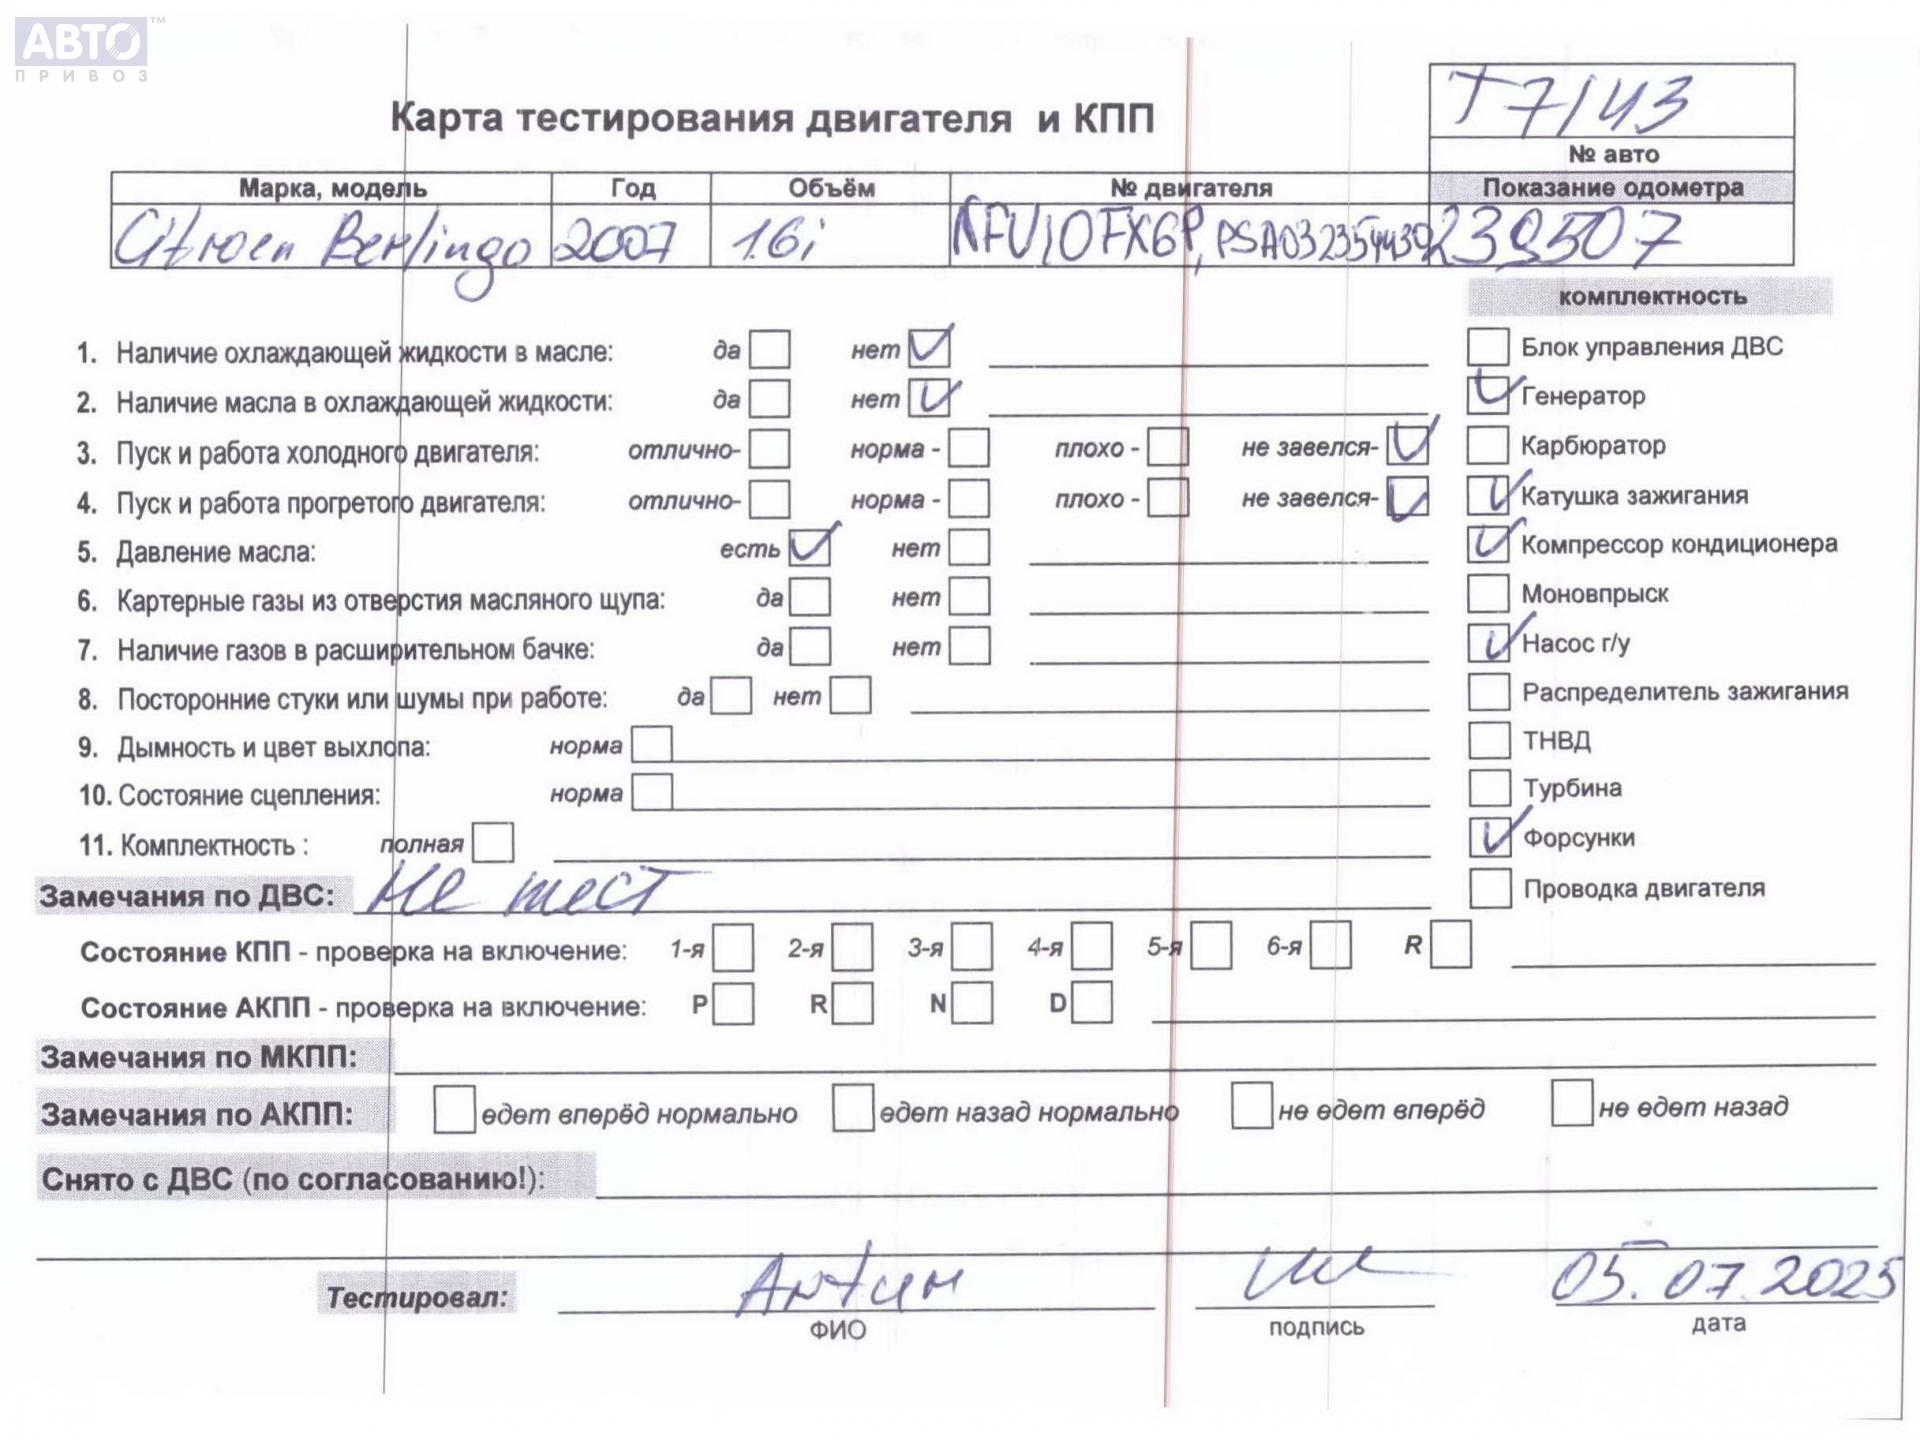 АВТО™
ПРИВОЗ
Т7/43
Карта тестирования двигателя и КПП
№ авто
Марка, модель Год Объём № двигателя Показание одометра
Citroen Berlingo 2007 1.6i NFU10FX6P, PSA032354430 239507
комплектность
1. Наличие охлаждающей жидкости в масле: да нет
Блок управления ДВС
2. Наличие масла в охлаждающей жидкости: да нет
Генератор
3. Пуск и работа холодного двигателя: отлично- норма - плохо - не завелся-
Карбюратор
4. Пуск и работа прогретого двигателя: отлично- норма - плохо - не завелся-
Катушка зажигания
5. Давление масла: есть нет
Компрессор кондиционера
6. Картерные газы из отверстия масляного щупа: да нет
Моновпрыск
7. Наличие газов в расширительном бачке: да нет
Насос г/у
8. Посторонние стуки или шумы при работе: да нет
Распределитель зажигания
9. Дымность и цвет выхлопа: норма
ТНВД
10. Состояние сцепления: норма
Турбина
11. Комплектность : полная
Форсунки
Замечания по ДВС: Не тест
Проводка двигателя
Состояние КПП - проверка на включение: 1-я 2-я 3-я 4-я 5-я 6-я R
Состояние АКПП - проверка на включение: P R N D
Замечания по МКПП:
Замечания по АКПП: едет вперёд нормально едет назад нормально не едет вперёд не едет назад
Снято с ДВС (по согласованию!):
Тестировал: 05.07.2025
ФИО подпись дата